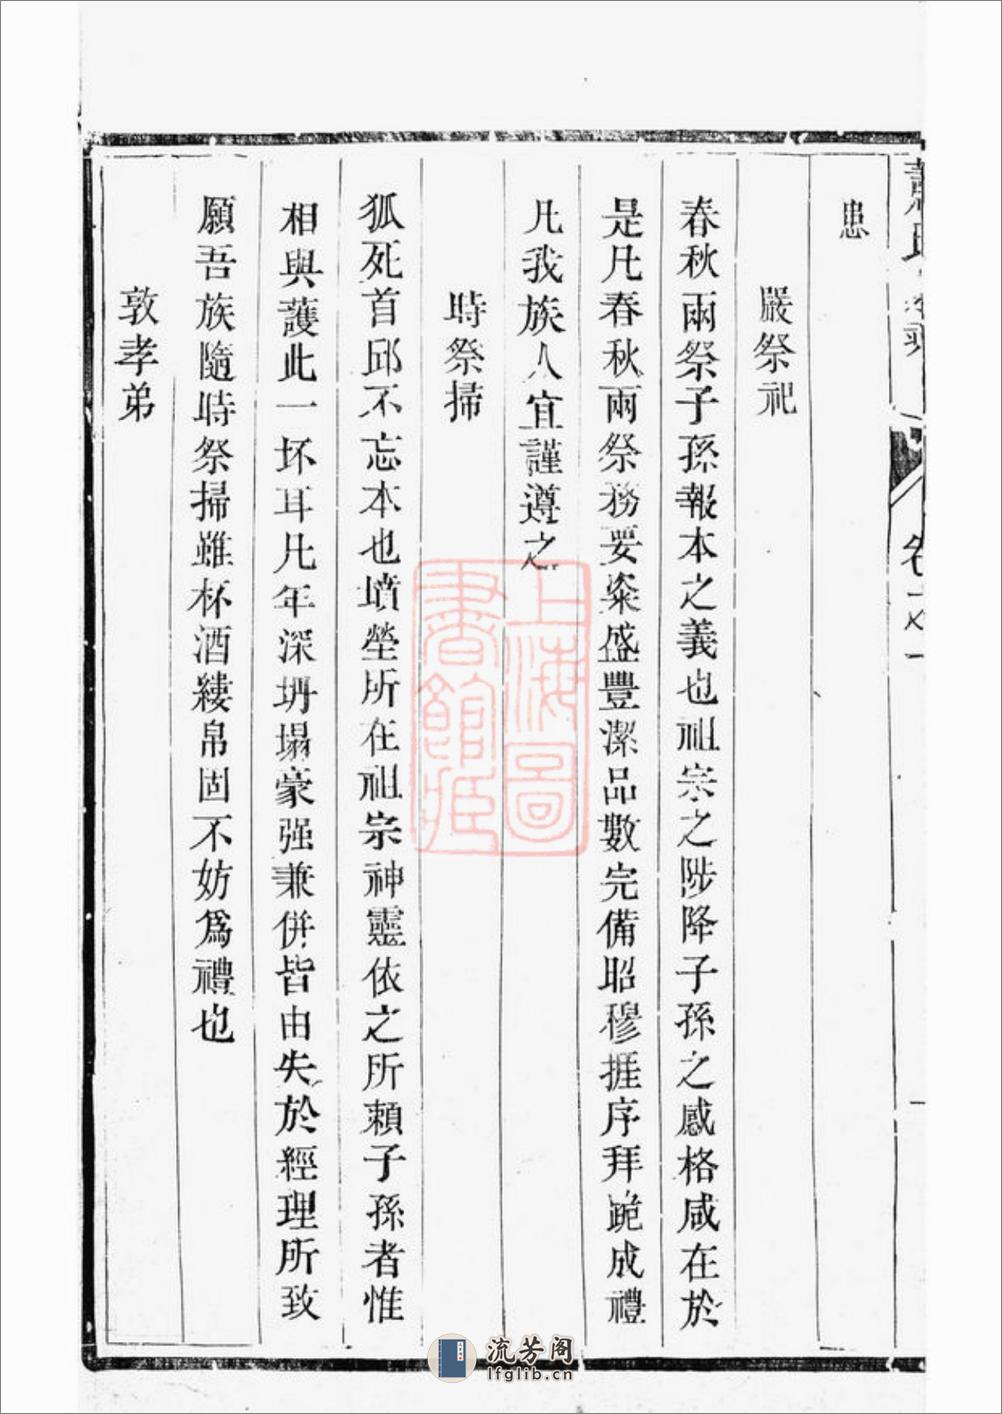 患
嚴祭祀
春秋兩祭子孫報本之義也祖宗之陟降子孫之感格咸在於
是凡春秋兩祭務要粢盛豐潔品數完備昭穆挨序拜跪成禮
凡我族人宜謹遵之
時祭掃
狐死首邱不忘本也墳塋所在祖宗神靈依之所賴子孫者惟
相與護此一坏耳凡年深坍塌豪强兼併皆由失於經理所致
願吾族隨時祭掃雖杯酒縷帛固不妨爲禮也
敦孝弟
上海圖
書館藏
流芳阁
lfglib.cn